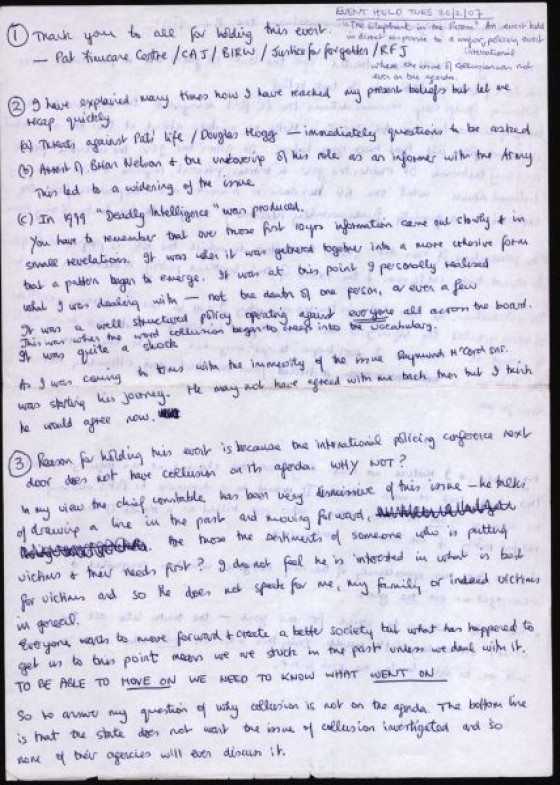 EVENT HELD TUES 20/2/07
"The Elephant in the Room" An event held
in direct response to a major policing event
international
where the issue of collusion was not
even on the agenda.
① Thank you to all for holding this event.
— Pat Finucane Centre / CAJ / BIRW / Justice for forgotten / RFJ
② I have explained many times how I have reached my present beliefs but let me
recap quickly
(a) Threats against Pats' life / Douglas Hogg — immediately questions to be asked
(b) Arrest of Brian Nelson + the undercover of his role as an informer with the Army
This led to a widening of the issue.
(c) In 1999 "Deadly Intelligence" was produced.
You have to remember that over those first 10yrs information came out slowly + in
small revelations. It was when it was gathered together into a more cohesive form
that a pattern began to emerge. It was at this point I personally realised
what I was dealing with — not the death of one person, or even a few
It was a well structured policy operating against everyone all across the board.
This was when the word collusion began to creep into the vocabulary.
It was quite a shock
As I was coming to terms with the immensity of the issue Raymund McCord snr.
was starting his journey. He may not have agreed with me back then but I think
he would agree now.
③ Reason for holding this event is because the international policing conference next
door does not have collusion on its agenda. WHY NOT?
In my view the chief constable has been very dismissive of this issue — he talks
of drawing a line in the past and moving forward,
Are those the sentiments of someone who is putting
victims + their needs first? I do not feel he is interested in what is best
for victims and so he does not speak for me, my family, or indeed victims
in general.
Everyone wants to move forward + create a better society but what has happened to
get us to this point means we are stuck in the past unless we deal with it.
TO BE ABLE TO MOVE ON WE NEED TO KNOW WHAT WENT ON
So to answer my question of why collusion is not on the agenda. The bottom line
is that the state does not want the issue of collusion investigated and so
none of their agencies will ever discuss it.